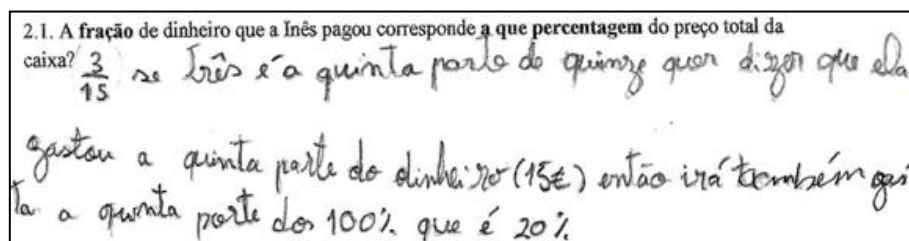 2.1. A fração de dinheiro que a Inês pagou corresponde a que percentagem do preço total da
caixa? 3/15 se três é a quinta parte de quinze quer dizer que ela
gastou a quinta parte do dinheiro (15€) então irá também gas
ta a quinta parte dos 100% que é 20%.